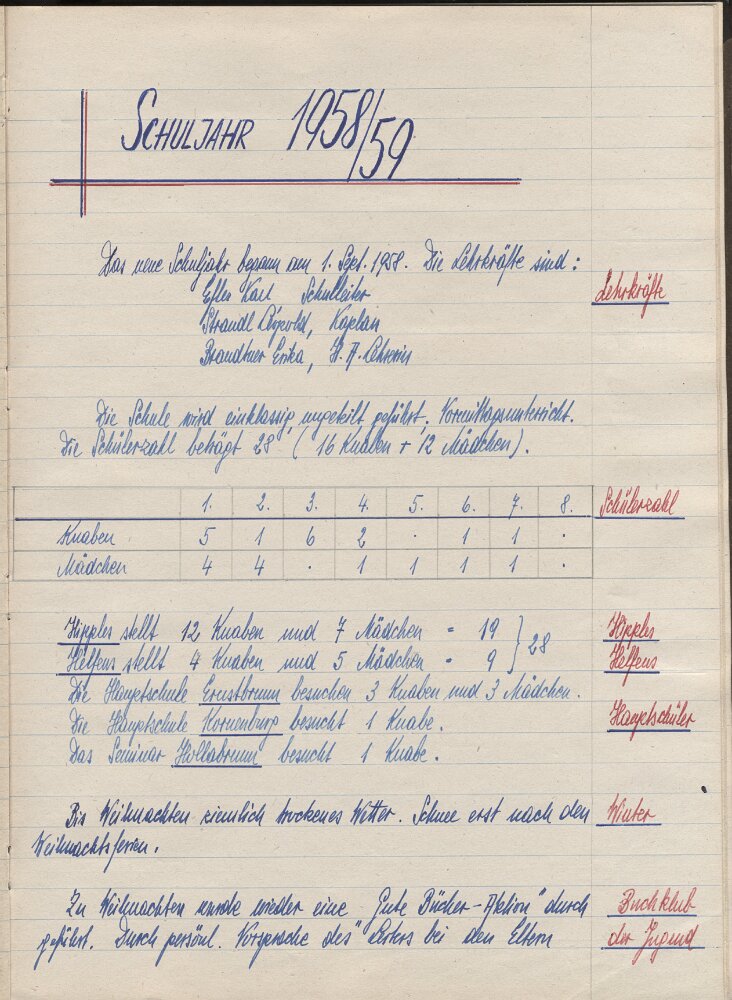 SCHULJAHR 1958/59
Das neue Schuljahr begann am 1. Sept. 1958. Die Lehrkräfte sind:
Lehrkräfte
Karl Schulleiter
Strandl Leopold, Kaplan
Brandtner Erika, H. A. Lehrerin
Die Schule wird einklassig, ungeteilt geführt. Vormittagsunterricht.
Die Schülerzahl beträgt 28 (16 Knaben + 12 Mädchen).
1. 2. 3. 4. 5. 6. 7. 8. Schülerzahl
Knaben 5 1 6 2 . 1 1 .
Mädchen 4 4 . 1 1 1 1 .
Hipples stellt 12 Knaben und 7 Mädchen = 19 Hipples
Helfens stellt 4 Knaben und 5 Mädchen = 9 } 28 Helfens
Die Hauptschule Ernstbrunn besuchen 3 Knaben und 3 Mädchen.
Die Hauptschule Korneuburg besucht 1 Knabe. Hauptschüler
Das Seminar Hollabrunn besucht 1 Knabe.
Bis Weihnachten ziemlich trockenes Wetter. Schnee erst nach den Winter
Weihnachtsferien.
Zu Weihnachten wurde wieder eine „Gute Bücher-Aktion" durch Buchklub
geführt. Durch persönl. Vorsprache des Leiters bei den Eltern der Jugend